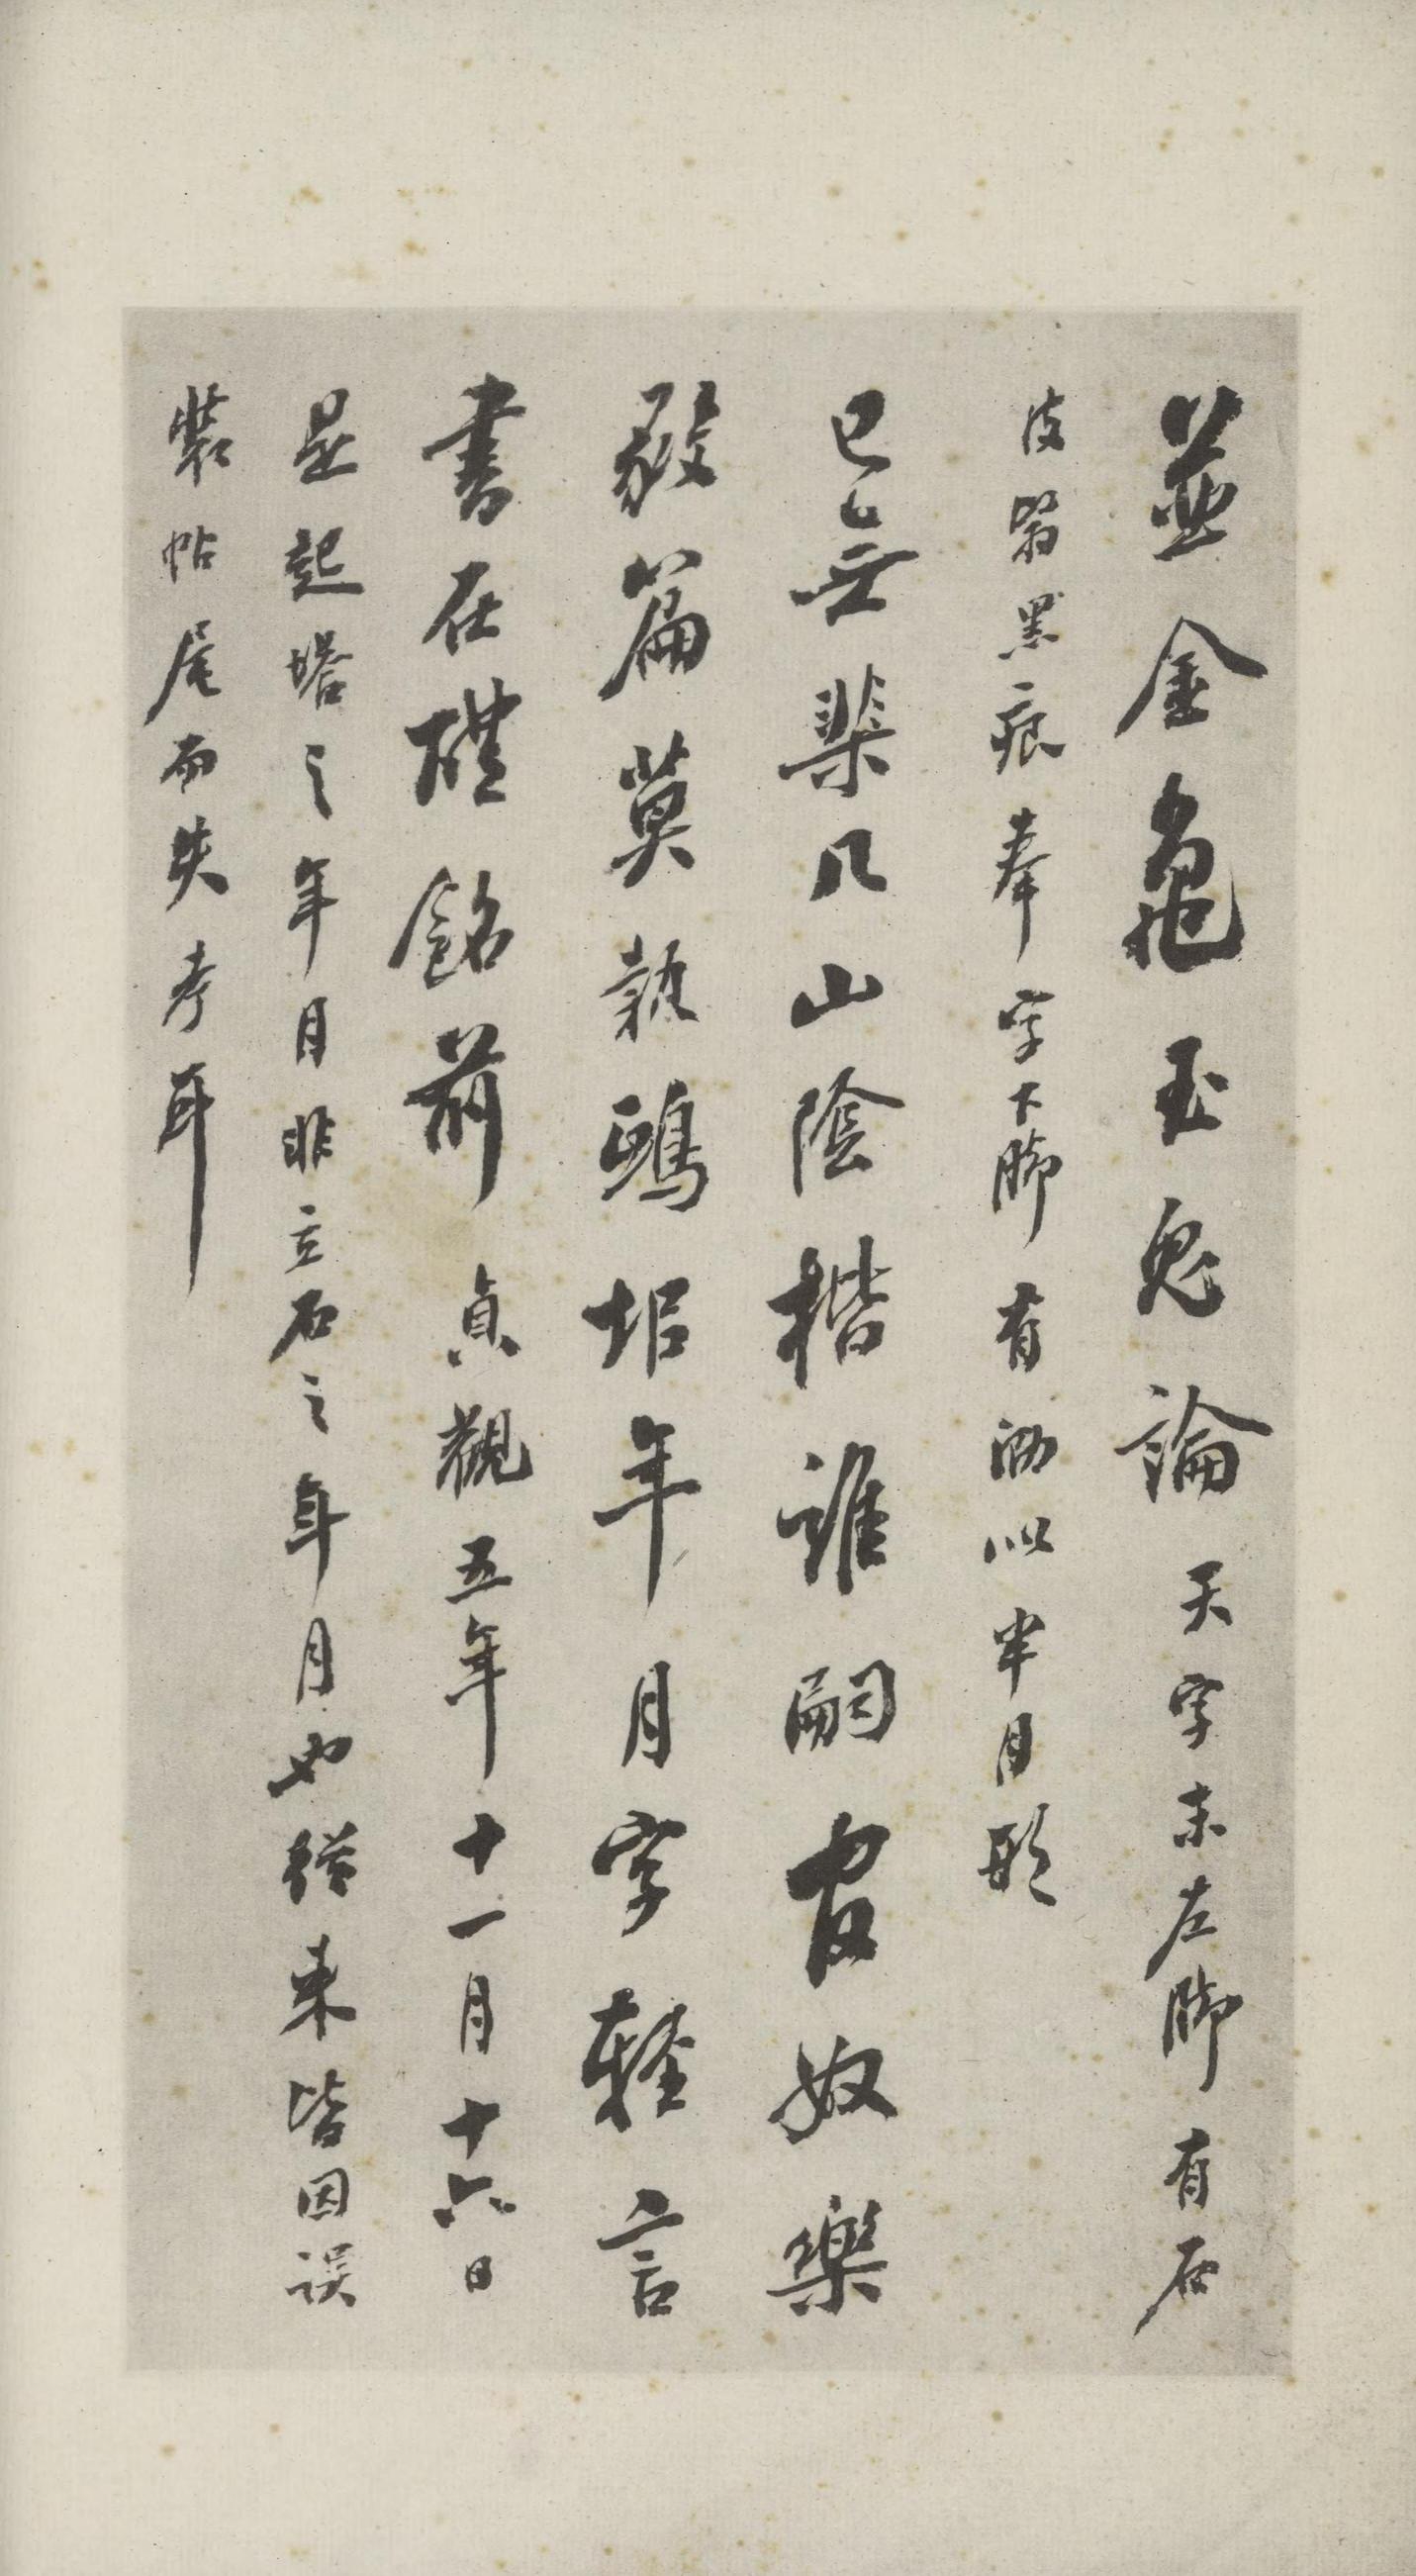 並金龜玉兔論天字末左脚有石
皮黑痕奉字下脚有泐似半月形
已無棐几山陰楷誰嗣官奴樂
毅篇莫執鷗年月字輕言
書在醴銘前貞觀五年十一月十六日
是起塔之年月非立石之年月也從來皆因誤
裝帖尾而失考耳